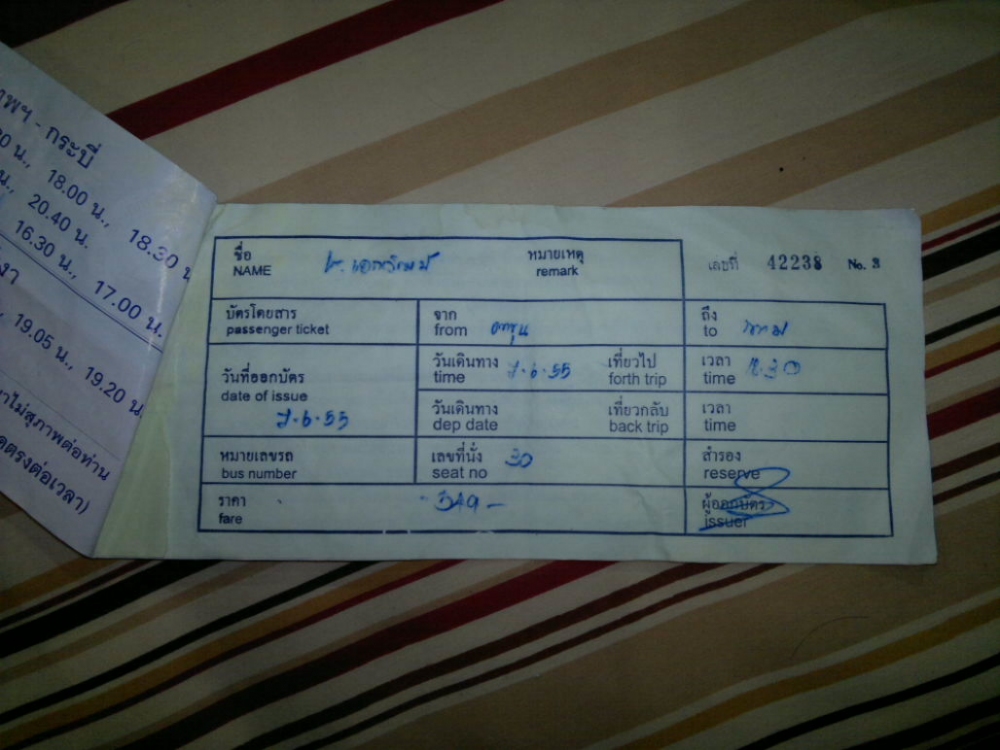 - กระบี่
18.00 น., 18.30
20.40 น.
16.30 น., 17.00 น.
19.05 น., 19.20 น.
ไม่สุภาพต่อท่าน
ตรงต่อเวลา)
ชื่อ หมายเหตุ
NAME remark
เลขที่ 42238 No.
บัตรโดยสาร จาก ถึง
passenger ticket from to
วันเดินทาง 7.6.55 เที่ยวไป เวลา
time forth trip time
วันที่ออกบัตร
date of issue
7.6.55
วันเดินทาง เที่ยวกลับ เวลา
dep date back trip time
หมายเลขรถ เลขที่นั่ง 30 สำรอง
bus number seat no reserve
ราคา ผู้ออกบัตร
fare 549 - issuer